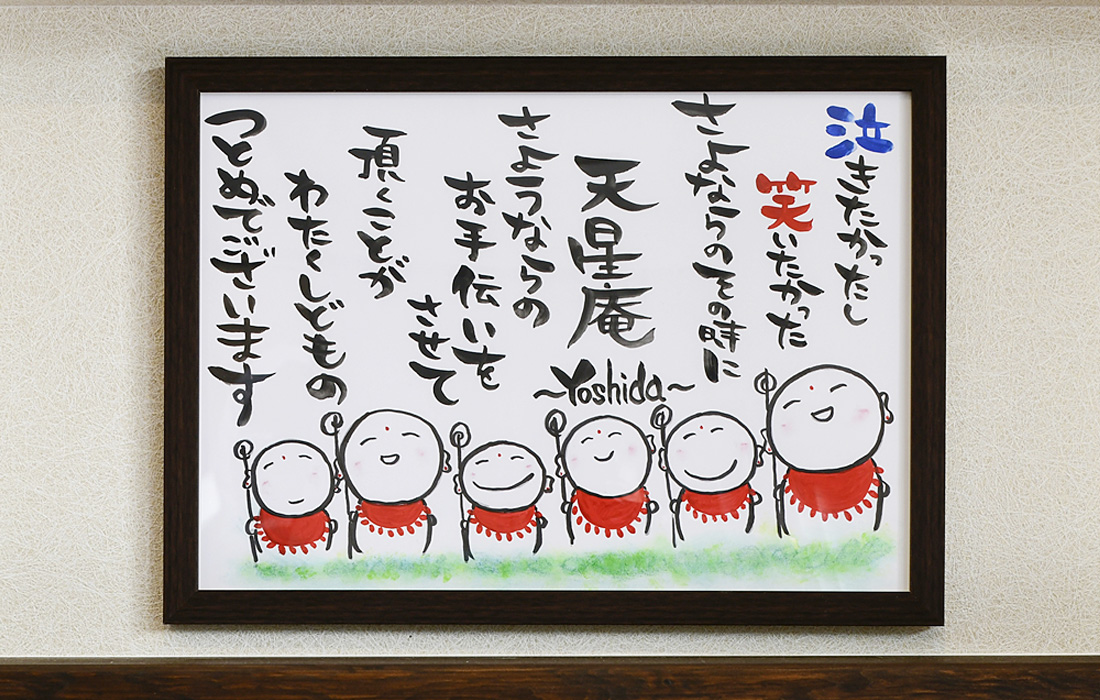 泣きたかったし
笑いたかった
さよならのその時に
天星庵
~Yoshida~
さようならの
お手伝いを
させて
頂くことが
わたくしどもの
つとめでございます